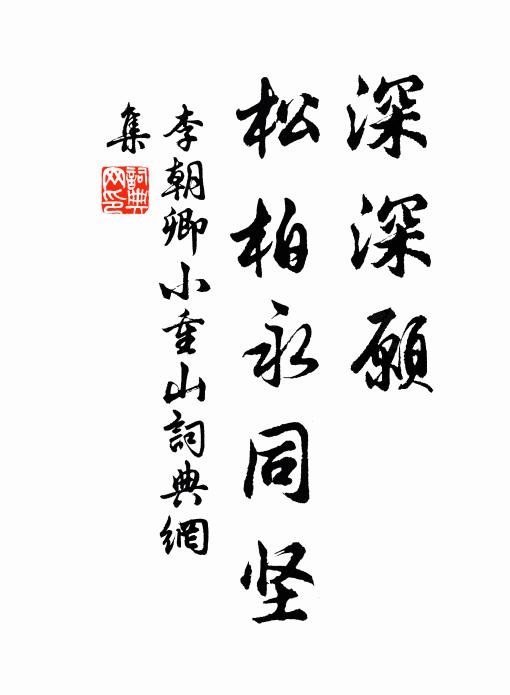 深深願
松柏永同坚
李朝卿小重山詞典網
集
詞典
网印